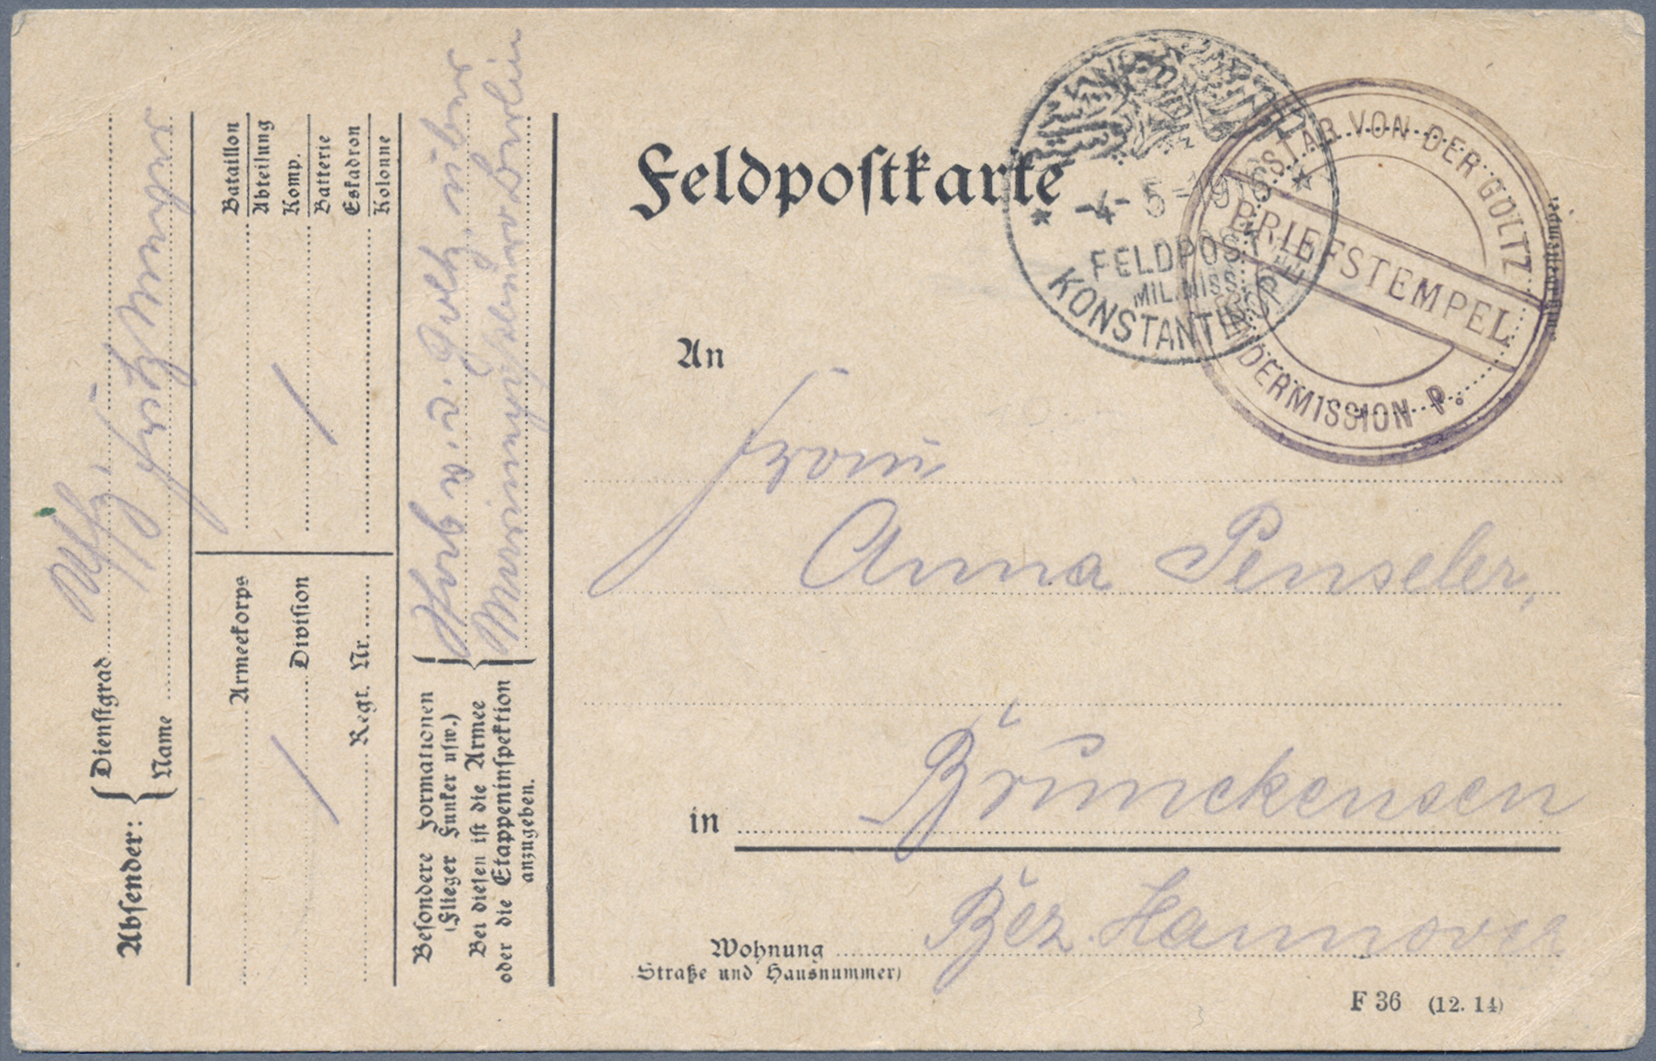 Feldpostkarte
-4-5-1916
FELDPOST
MIL. MISS.
KONSTANTINOPEL
STAB VON DER GOLTZ
BRIEFSTEMPEL
SONDERMISSION P.
An
Frau
Anna Penseler,
in Brünckensen
Bez. Hannover
Wohnung
Straße und Hausnummer)
F 36 (12. 14)
Absender:
Dienstgrad Uffz.
Name
Armeekorps
Division
Regt. Nr.
Bataillon
Abteilung
Komp.
Batterie
Eskadron
Kolonne
Besondere Formationen
(Flieger Funker usw.)
Bei diesen ist die Armee
oder die Etappeninspektion
anzugeben.